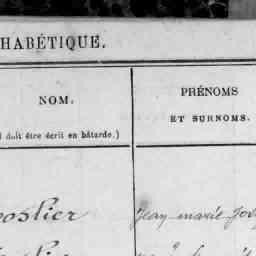 HABÉTIQUE.
NOM.
doit être écrit en bâtarde.)
PRÉNOMS
ET SURNOMS.
oslier
Jean marie